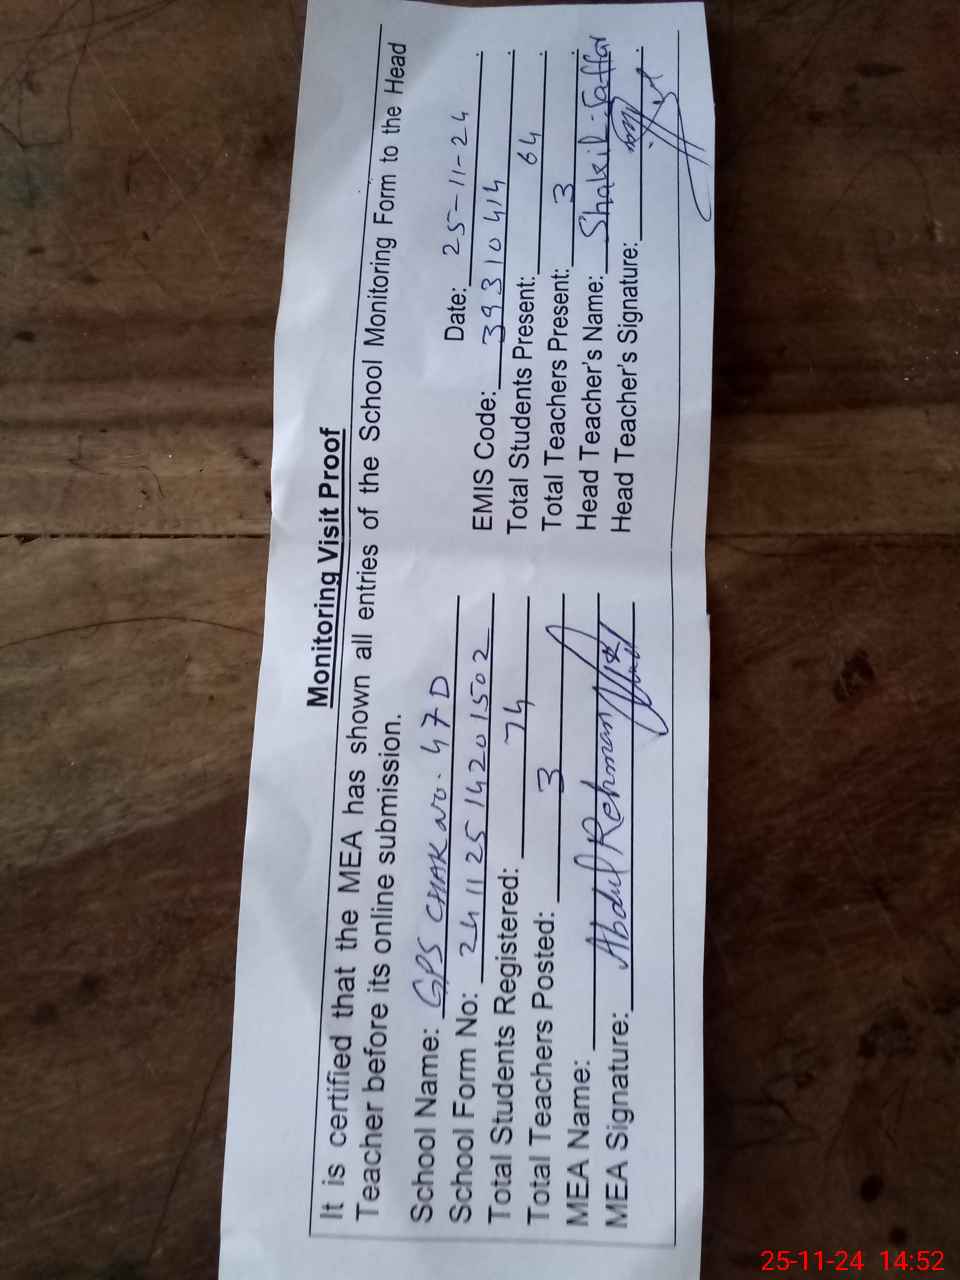 Monitoring Visit Proof
It is certified that the MEA has shown all entries of the School Monitoring Form to the Head
Teacher before its online submission.
Date: 25-11-24
School Name: GPS CHAK NO. 47 D
EMIS Code: 39310414
School Form No: 24112514201502
Total Students Present: 64
Total Students Registered: 74
Total Teachers Present: 3
Total Teachers Posted: 3
Head Teacher's Name: Shakil
MEA Name: Abdul Rehman
Head Teacher's Signature:
MEA Signature:
25-11-24 14:52